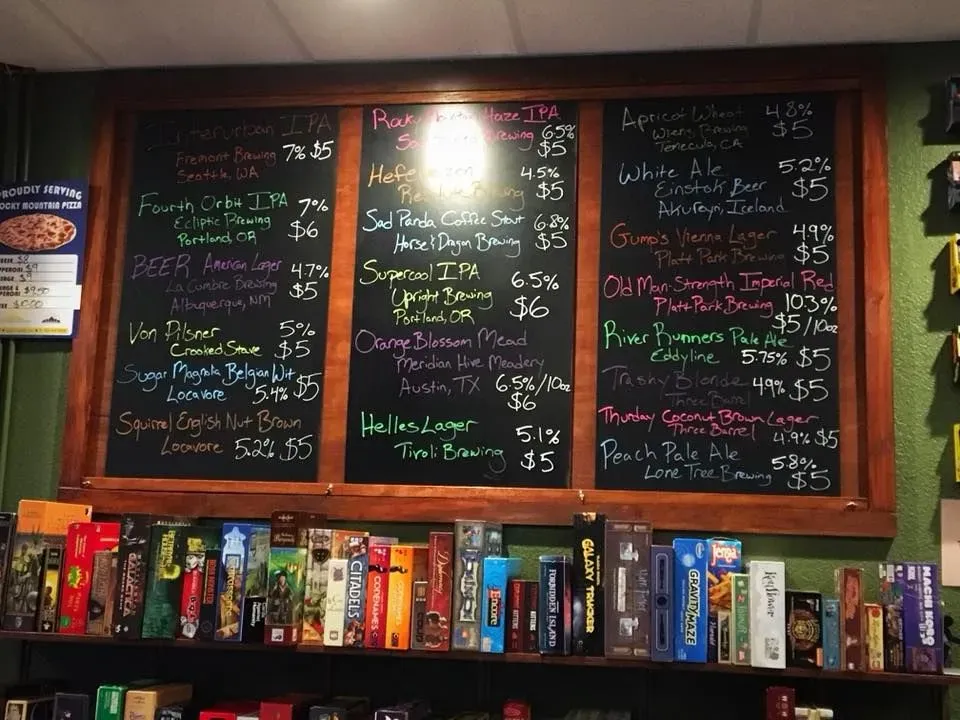 Interurban IPA
Fremont Brewing 7% $5
Seattle, WA
Fourth Orbit IPA 7%
Ecliptic Brewing $6
Portland, OR
BEER American Lager 4.7%
La Cumbre Brewing $5
Albuquerque, NM
Von Pilsner 5%
Crooked Stave $5
Sugar Magnolia Belgian Wit
Locavore 5.4% $5
Squirrel English Nut Brown
Locavore 5.2% $5
Rocky Mountain Haze IPA
Brewing 6.5%
$5
4.5%
Brewing $5
Sad Panda Coffee Stout 6.8%
Horse & Dragon Brewing $5
Supercool IPA 6.5%
Upright Brewing $6
Portland, OR
Orange Blossom Mead
Meridian Hive Meadery
Austin, TX 6.5%/10oz
$6
Helles Lager 5.1%
Tivoli Brewing $5
Apricot Wheat 4.8%
Wiens Brewing $5
Temecula, CA
White Ale 5.2%
Einstok Beer $5
Akureyri, Iceland
Gump's Vienna Lager 4.9%
Platt Park Brewing $5
Old Man Strength Imperial Red
Platt Park Brewing 10.3%
$5/10oz
River Runners Pale Ale
Eddyline 5.75% $5
Trashy Blonde 4.9% $5
Three Barrel
Thurday Coconut Brown Lager
Three Barrel 4.9% $5
Peach Pale Ale 5.8%
Lone Tree Brewing $5
PROUDLY SERVING
ROCKY MOUNTAIN PIZZA
CITADELS
CODENAMES
CODENAMES
Diplomacy
Encore
FORBIDDEN ISLAND
GALAXY TRUCKER
GRAVITY MAZE
Jenga
Keyflower
MACHI KORO